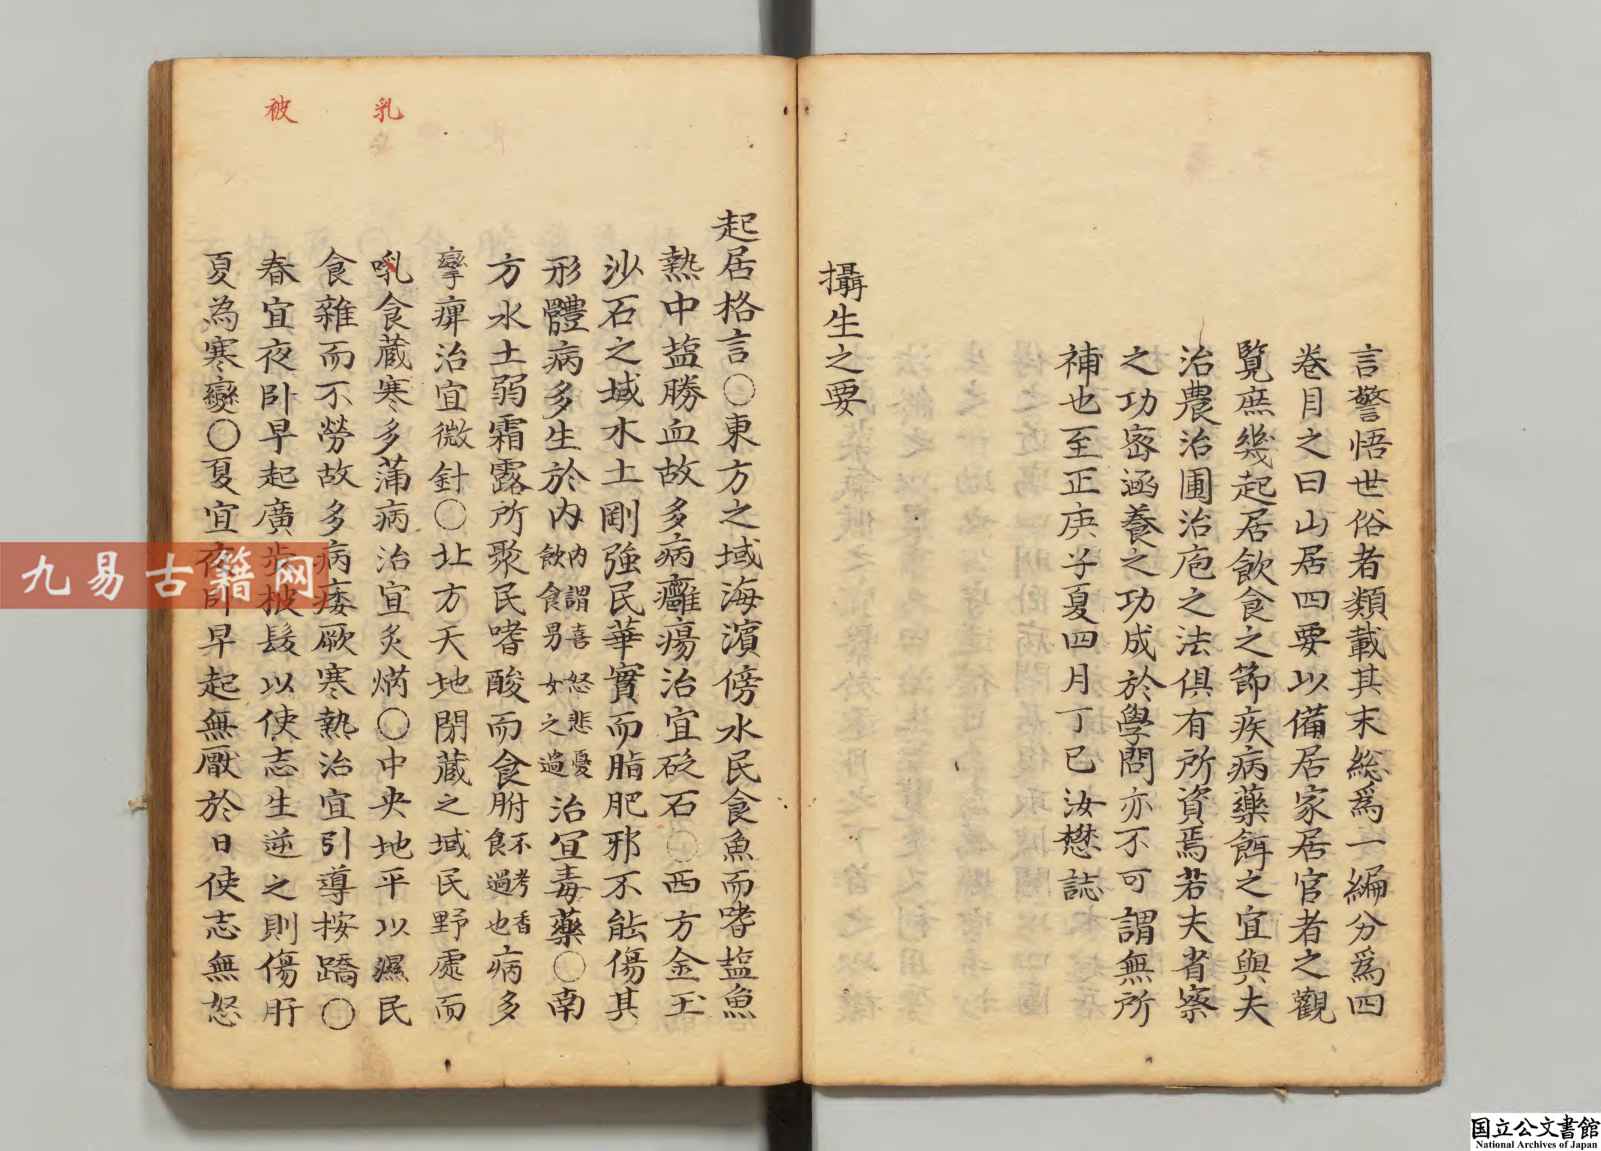 言警悟世俗者類載其末総爲一編分爲四
卷目之曰山居四要以備居家居官者之觀
覽庶幾起居飲食之節疾病藥餌之宜與夫
治農治圃治庖之法俱有所資焉若夫省察
之功密涵養之功成於學問亦不可謂無所
補也至正庚子夏四月丁巳汝懋誌
攝生之要
乳
被
起居格言○東方之域海濱傍水民食魚而嗜塩魚
熱中塩勝血故多病癰瘍治宜砭石○西方金玉
沙石之域水土剛強民華實而脂肥邪不能傷其
形體病多生於內內謂喜怒悲憂飲食男女之過治宜毒藥○南
方水土弱霜露所聚民嗜酸而食胕不考香食過也病多
攣痺治宜微針○北方天地閉藏之域民野處而
乳食藏寒多蒲病治宜炙焫○中央地平以濕民
食雜而不勞故多病痿厥寒熱治宜引導按蹻○
春宜夜卧早起廣步披髮以使志生逆之則傷肝
夏為寒變○夏宜夜卧早起無厭於日使志無怒
九易古籍网
国立公文書館
National Archives of Japan